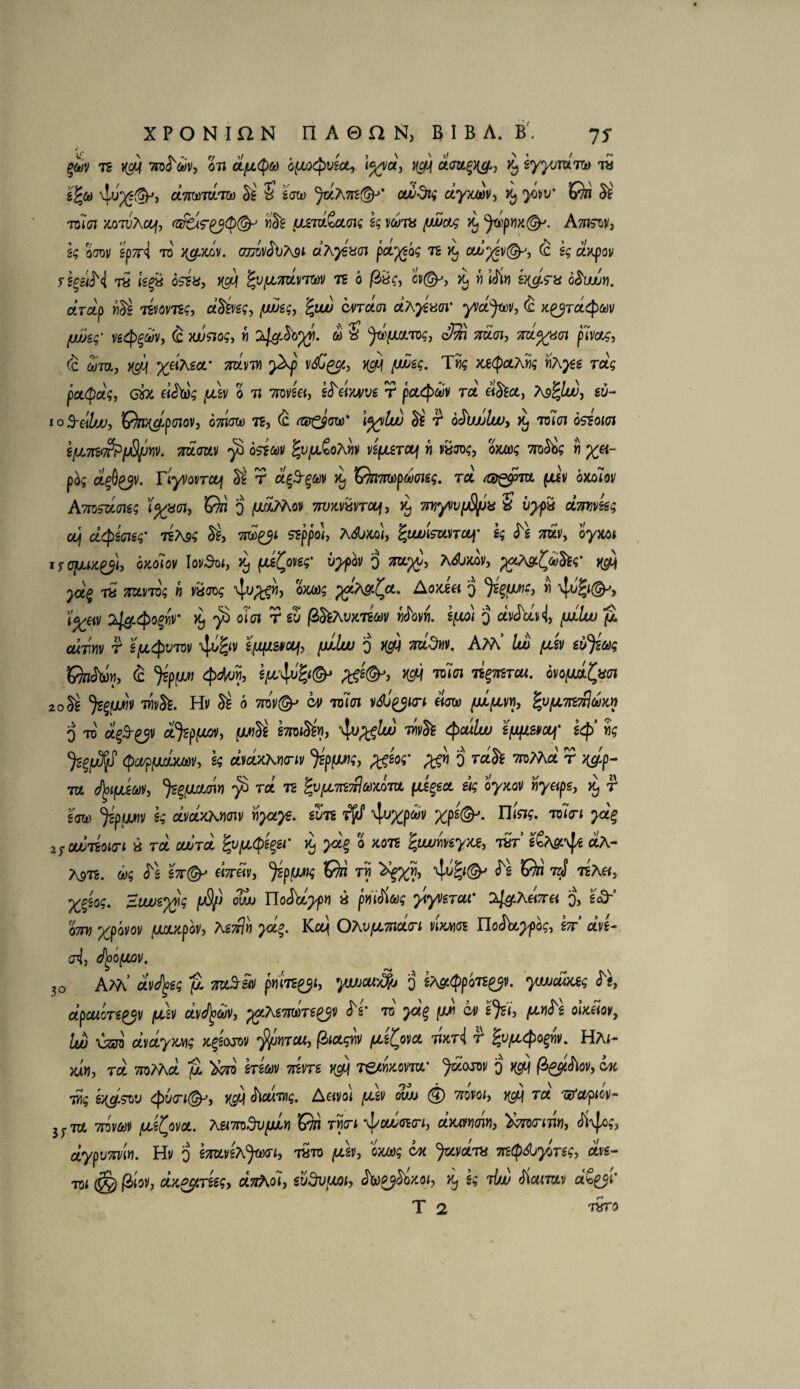 ΧΡΟΝΙΩΝ ΠΑΘΩΝ, ΒΙΒΛ. Β'. 75
ξων τε καὶ ποδῶν, ὅτι ἄμφω ὁμοφυέα, ἰσχνὰ, καὶ ἄσαρκα, καὶ ἐγγυτάτω τοῦ
ἔξω ψύχεος, ἀπωτάτω δὲ τοῦ ἔσω θάλπεος· αὖθις ἀγκὼν, καὶ γόνυ· ἐπὶ δὲ
τοῖσι κοτύλαι, περίστροφος ἠδὲ μετάβασις ἐς νώτου μύας καὶ θώρηκος. Ἄπιστον,
ἐς ὅσον ἕρπει τὸ κακόν. σπόνδυλοι ἀλγέουσι ῥάχεός τε καὶ αὐχένος, καὶ ἐς ἄκρον
5 ἐρείδει τοῦ ἱεροῦ ὀστέου, καὶ ξυμπάντων τε ὁ βοῦς, ὄνος, καὶ ἡ ἰδίη ἑκάστου ὀδύνη.
ἀτὰρ ἠδὲ τένοντες, ἀδένες, μύες, ξὺν ἐντάσι ἀλγέουσι· γνάθων, καὶ κροτάφων
μύες· νεφρῶν, καὶ κύστιος, ἡ διαδοχή. ὢ τοῦ θώματος, ἐπὶ πᾶσι, πάσχουσι ῥῖνας,
καὶ ὦτα, καὶ χείλεα· πάντη γὰρ νεῦρα, καὶ μύες. Τῆς κεφαλῆς ἤλγεε τὰς
ῥαφὰς, οὐκ εἰδὼς μὲν ὅ τι πονέει, ἐδείκνυε τῶν ῥαφῶν τὰ εἴδεα, λοξὴν, εὐ-
10 θεῖην, ἐπικάρσιον, ὀπίσω τε, καὶ πρόσω· ἰσχνὴν δὲ τὴν ὀδύνην, καὶ τοῖσι ὀστέοισι
ἐμπεφυκμένην. πᾶσαν γὰρ ὀστέων ξυμβολὴν νέμεται ἡ νοῦσος, ὅκως ποδὸς ἢ χει-
ρός. Γίγνονται δὲ τῶν ἄρθρων καὶ ἐπιπωρώσιες. τὰ πρῶτα μὲν ὁκοῖον
Ἀποστάσιες ἴσχουσι, ἐπὶ δὲ μᾶλλον πυκνοῦνται, καὶ πηγνυμένου τοῦ ὑγροῦ ἀπηνέες
αἱ ἀφέσιες· τέλος δὲ, πῶροι στερροὶ, λευκοὶ, ξυνίστανται· ἐς δὲ πᾶν, ὄγκοι
15 σμικροὶ, ὁκοῖον Ἰονθοι, καὶ μέζονες· ὑγρὸν δὲ παχὺ, λευκὸν, χαλαζῶδες· καὶ
γὰρ τοῦ παντὸς ἡ νοῦσος ψυχρὴ, ὅκως χάλαζα. Δοκέει δὲ θερμῆς, ἢ ψύξιος,
ἴσχειν διαφορήν· καὶ γὰρ οἷσι τῶν εὖ βδελυκτέων ἡδονή. ἐμοὶ δὲ ἁνδάνει, μίην μὲν
αἰτίην τὴν ἔμφυτον ψῦξιν ἔμμεναι, μίην δὲ καὶ πάθην. Ἀλλ' ἢν μὲν εὐθέως
ἐπιδώῃ, καὶ θέρμη φανῇ, ἐμψύξιος χρέος, καὶ τοῖσι τέρπεται. ὀνομάζουσι
20 δὲ θερμὴν τήνδε. Ἢν δὲ ὁ πόνος ἐν τοῖσι νεύροισι εἴσω μίμνῃ, ξυμπεπτώκῃ
δὲ τὸ ἄρθρον ἄθερμον, μηδὲ ἐποιδέῃ, ψυχρὴν τήνδε φαίην ἔμμεναι· ἐφ' ἧς
θερμῶν φαρμάκων, ἐς ἀνάκλησιν θέρμης, χρέος· χρὴ δὲ τάδε πολλὰ τῶν κάρ-
τα δριμέων, θερμασίη γὰρ τά τε ξυμπεπτωκότα μέρεα ἐς ὄγκον ἤγειρε, καὶ τὴν
ἔσω θέρμην ἐς ἀνάκλησιν ἤγαγε. εὖτε τῶν ψυχρῶν χρέος. Πίστις. τοῖσι γὰρ
25 αὐτέοισι οὐ τὰ αὐτὰ ξυμφέρει· καὶ γὰρ ὅ κοτε ξυνήνεγκε, τοῦτ' ἔβλαψε ἄλ-
λοτε. ὡς δ' ἔπος εἰπεῖν, θέρμης ἐπὶ τῇ ἀρχῇ, ψύξιος δὲ ἐπὶ τῷ τέλει,
χρέος. Ξυνεχὴς μὲν οὖν Ποδάγρη οὐ ῥηϊδίως γίγνεται· διαλείπει δὲ, ἔσθ'
ὅπη χρόνον μακρὸν, λεπτὴ γάρ. Καὶ Ὀλυμπιάσι νίκησε Ποδαγρὸς, ἐπ' ἀνέ-
σει, δρόμον.
30 Ἀλλ' ἄνδρες μὲν παθεῖν ῥηΐτεροι, γυναικῶν δὲ ἐλαφρότερον. γυναῖκες δὲ,
ἀραιότερον μὲν ἀνδρῶν, χαλεπώτερον δέ· τὸ γὰρ μὴ ἐν ἔθεϊ, μηδὲ οἰκεῖον,
ἢν ὑπὸ ἀνάγκης κρέσσον γένηται, βίαιην μέζονα τίκτει τὴν ξυμφορήν. Ἡλι-
κίη, τὰ πολλὰ μὲν ἀπὸ ἐτέων πέντε καὶ τριήκοντα· θᾶσσον δὲ καὶ βράδιον, ἐκ
τῆς ἑκάστου φύσιος, καὶ διαίτης. Δεινοὶ μὲν οὖν οἱ πόνοι, καὶ τὰ παριόν-
35 τα πόνων μέζονα. λειποθυμίη ἐπὶ τῇσι ψαύσεσι, ἀκινησίη, ἀποσιτίη, δίψος,
ἀγρυπνίη. Ἢν δὲ ἐπανέλθωσι, τοῦτο μὲν, ὅκως ἐκ θανάτου πεφευγότες, ἄνε-
τοι τὸν βίον, ἀκρατέες, ἁπλοῖ, εὔθυμοι, δωροδόκοι, καὶ ἐς τὴν δίαιταν ἁβροί·
T 2 τοῦτο